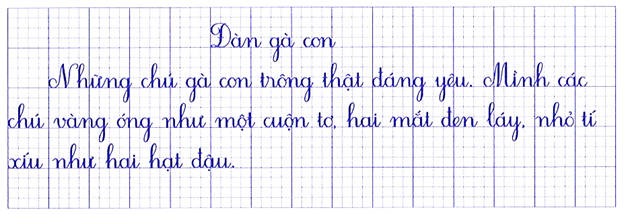 Đàn gà con
Những chú gà con trông thật đáng yêu. Mình các
chú vàng óng như một cuộn tơ, hai mắt đen láy, nhỏ tí
xíu như hai hạt đậu.